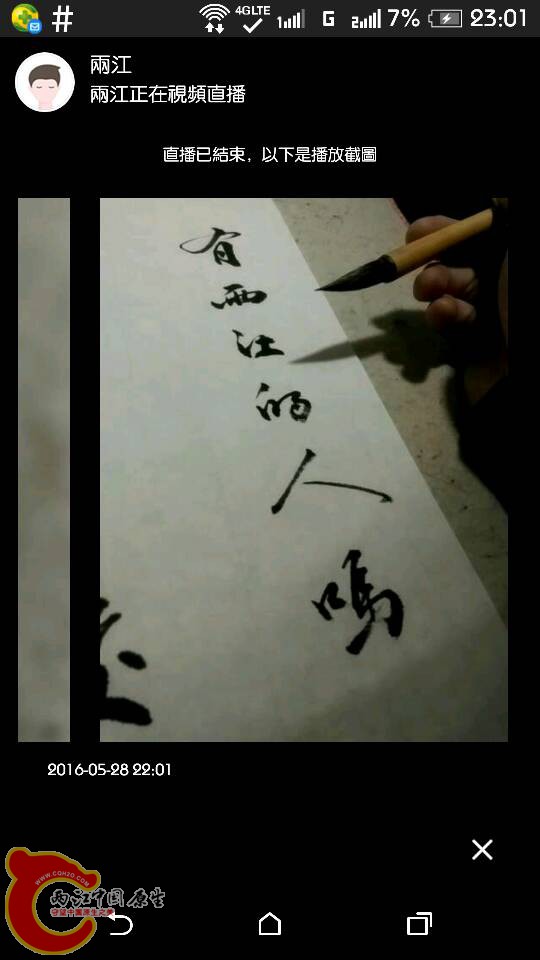 # 4GLTE 1 G 2 7% 23:01
兩江
兩江正在視頻直播
直播已結束，以下是播放截圖
有两江的人嗎
2016-05-28 22:01
WWW.CQH2O.COM
两江中国原生